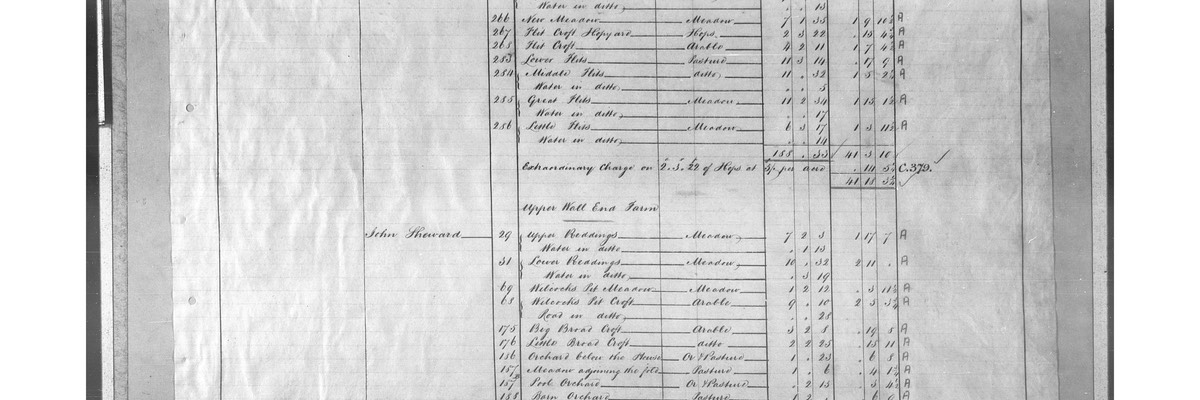 Water in ditto . . 13
266 New Meadow Meadow 7 1 35 1 9 10½ A
267 Flit Croft Hopyard Hops 2 3 22 . 13 4½ A
268 Flit Croft Arable 4 2 11 1 7 4½ A
283 Lower Flits Pasture 11 3 14 . 17 9 A
284 Middle Flits ditto 11 . 32 1 5 2½ A
Water in ditto . . 5
285 Great Flits Meadow 11 2 34 1 13 1½ A
Water in ditto . . 17
286 Little Flits Meadow 6 3 17 1 3 11½ A
Water in ditto . . 14
188 . 33 41 3 10
Extraordinary Charge on 2.3.22 of Hops at 5/- per acre . 14 5½ C.379.
41 18 3½
Upper Wall End Farm
John Sheward 29 Upper Reddings Meadow 7 2 3 1 17 7 A
Water in ditto . 1 13
31 Lower Reddings Meadow 10 . 32 2 11 . A
Water in ditto . 3 19
69 Wilcocks Pit Meadow Meadow 1 2 12 . 3 11½ A
68 Wilcocks Pit Croft Arable 9 . 10 2 3 3¼ A
Road in ditto . . 28
175 Big Broad Croft Arable 3 2 8 . 19 8 A
176 Little Broad Croft ditto 2 2 25 . 15 11 A
186 Orchard below the House Or & Pasture 1 . 23 . 6 8 A
187a Meadow adjoining the fold Pasture 1 . 6 . 4 1½ A
187 Pool Orchard Or & Pasture . 2 15 . 3 4½ A
188 Barn Orchard Pasture 1 2 . . 6 9 A